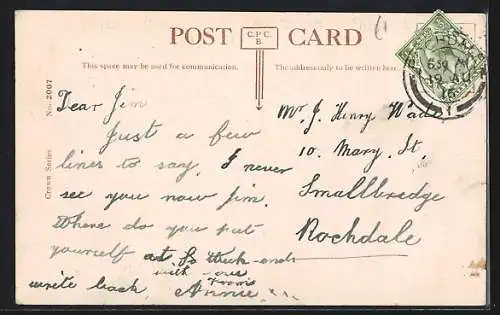 POST CARD
C.P.C.
B.
This space may be used for communication.
The address only to be written here.
Crown Series No. 2007
6
6 30
19 AU
15
1
Dear Jim
Just a few
lines to say. I never
see you now Jim.
Where do you put
yourself at. week-ends
write back with one
from
Annie xx
Mr. J. Henry Wade
10. Mary. St.
Smallbredge
Rochdale